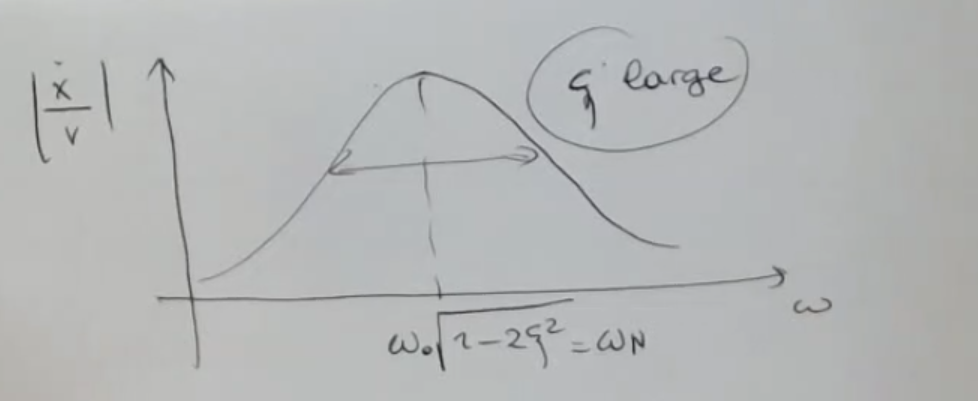 |ẋ/v|
ζ large
ω
ω₀√1-2ζ² = ωN